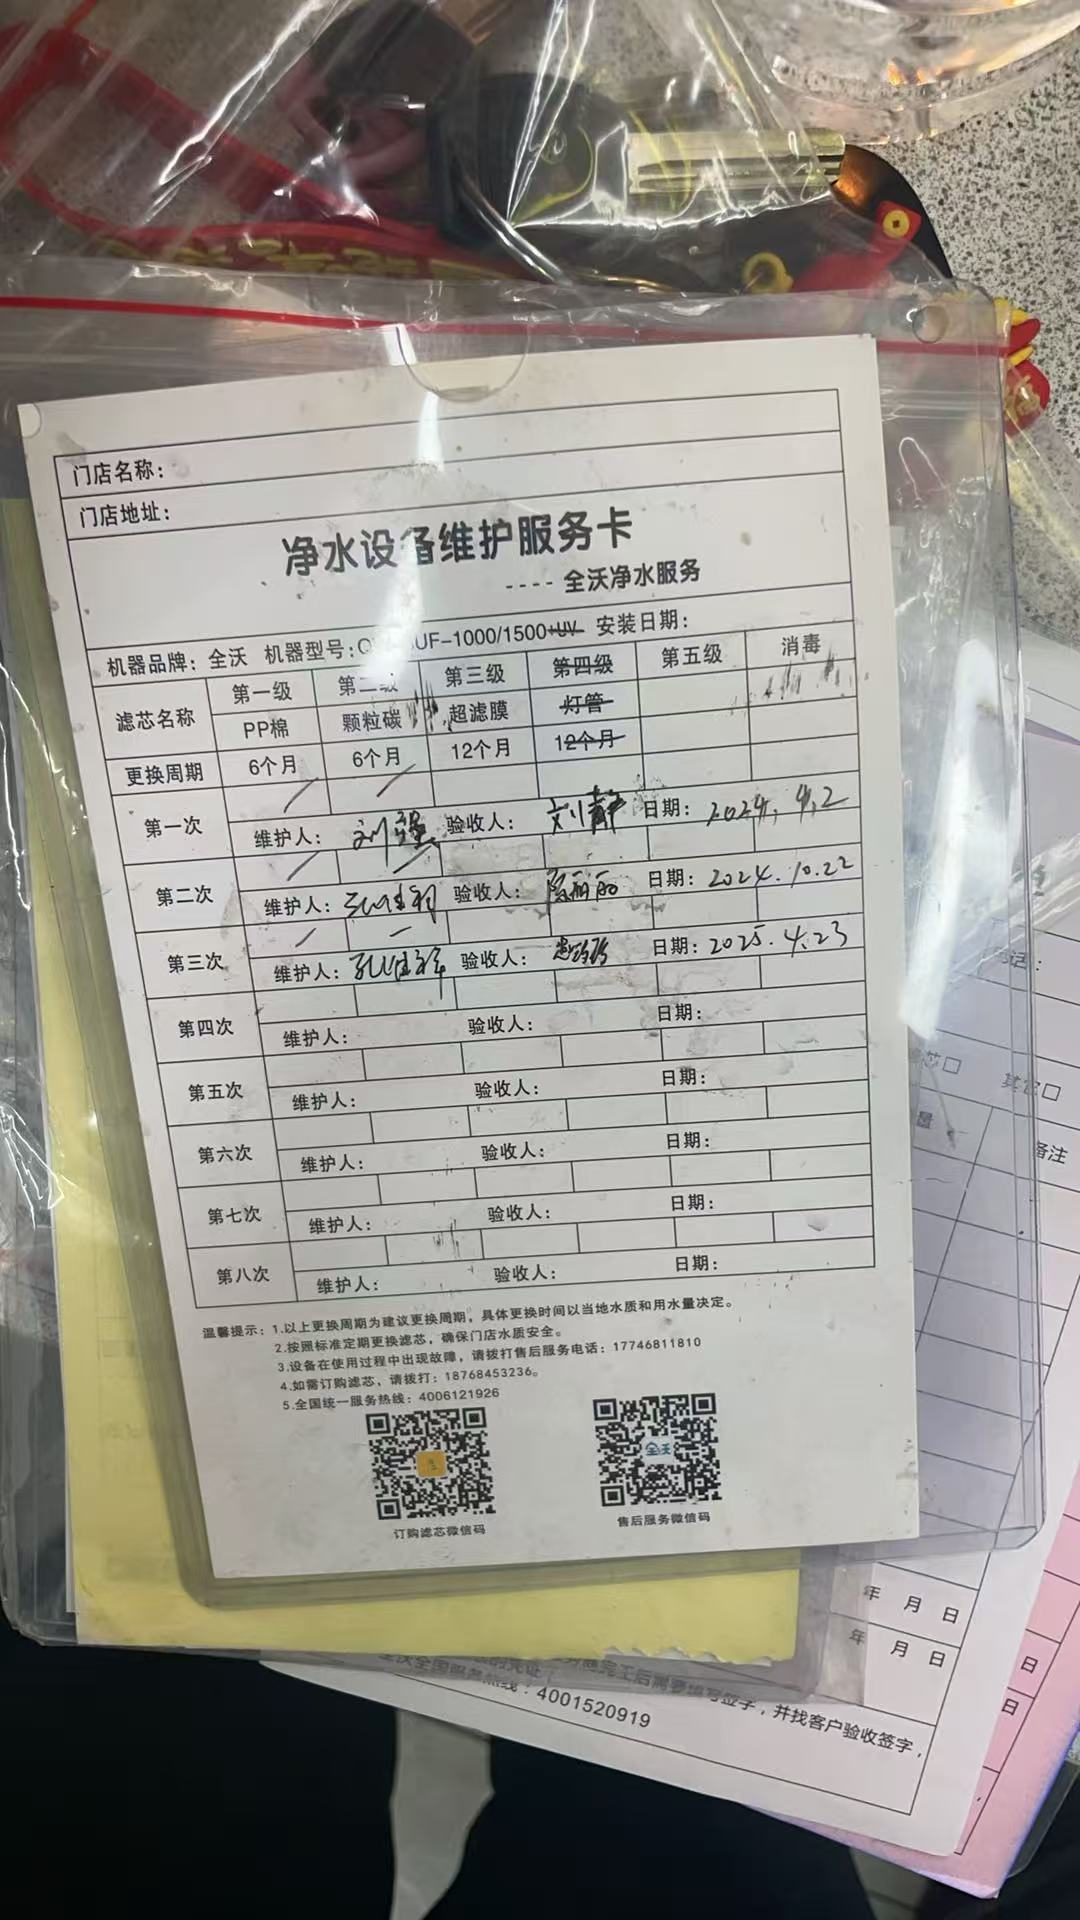 门店名称：
门店地址：
净水设备维护服务卡
---- 全沃净水服务
机器品牌：全沃 机器型号：UF-1000/1500+UV 安装日期：
滤芯名称 第一级 第二级 第三级 第四级 第五级 消毒
PP棉 颗粒碳 超滤膜 灯管
更换周期 6个月 6个月 12个月 12个月
第一次 / /
维护人：刘强 验收人：刘静 日期：2024.4.2
第二次 / /
维护人： 验收人： 日期：2024.10.22
第三次 / /
维护人： 验收人： 日期：2025.4.23
第四次
维护人： 验收人： 日期：
第五次
维护人： 验收人： 日期：
第六次
维护人： 验收人： 日期：
第七次
维护人： 验收人： 日期：
第八次
维护人： 验收人： 日期：
温馨提示：1.以上更换周期为建议更换周期，具体更换时间以当地水质和用水量决定。
2.按照标准定期更换滤芯，确保门店水质安全。
3.设备在使用过程中出现故障，请拨打售后服务电话：17746811810
4.如需订购滤芯，请拨打：18768453236。
5.全国统一服务热线：4006121926
全沃
订购滤芯微信码
售后服务微信码
芯□ 其它□
量 备注
年 月 日
年 月 日
日
日
完工后需要填写签字，并找客户验收签字，
全国服务热线：4001520919
福